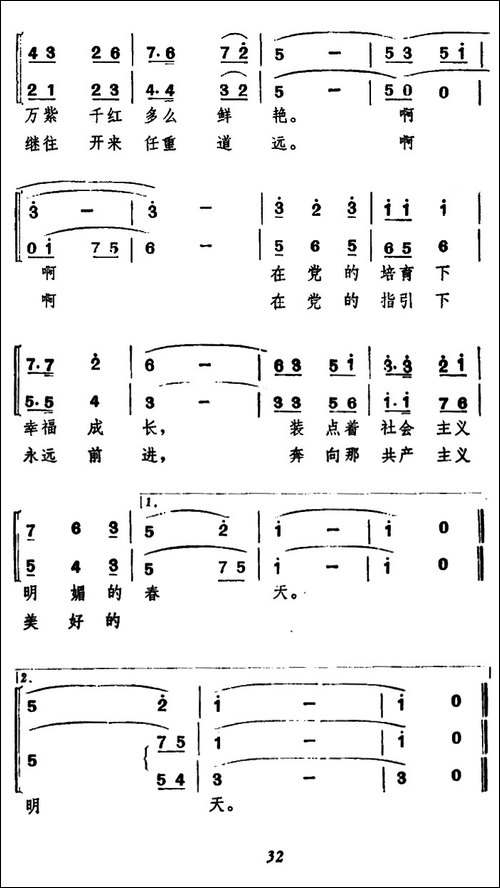 4 3 2 6 7·6 7 2 5 — 5 3 5 1
2 1 2 3 4·4 3 2 5 — 5 0 0
万紫 千红 多么 鲜 艳。 啊
继往 开来 任重 道 远。 啊
3 — 3 — 3 2 3 1 1 1
0 1 7 5 6 — 5 6 5 6 5 6
啊 在 党 的 培育 下
啊 在 党 的 指引 下
7·7 2 6 — 6 3 5 1 3·3 2 1
5·5 4 3 — 3 3 5 6 1·1 7 6
幸福 成 长, 装 点着 社会 主义
永远 前 进, 奔 向那 共产 主义
1.
7 6 3 5 2 1 — 1 0
5 4 3 5 7 5 1 — 1 0
明 媚 的 春 天。
美 好 的
2.
5 2 1 — 1 0
5 7 5 1 — 1 0
5 4 3 — 3 0
明 天。
32